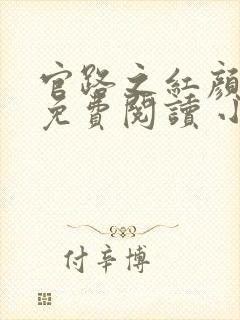 官路之红顏
免費閱讀 小
付辛博